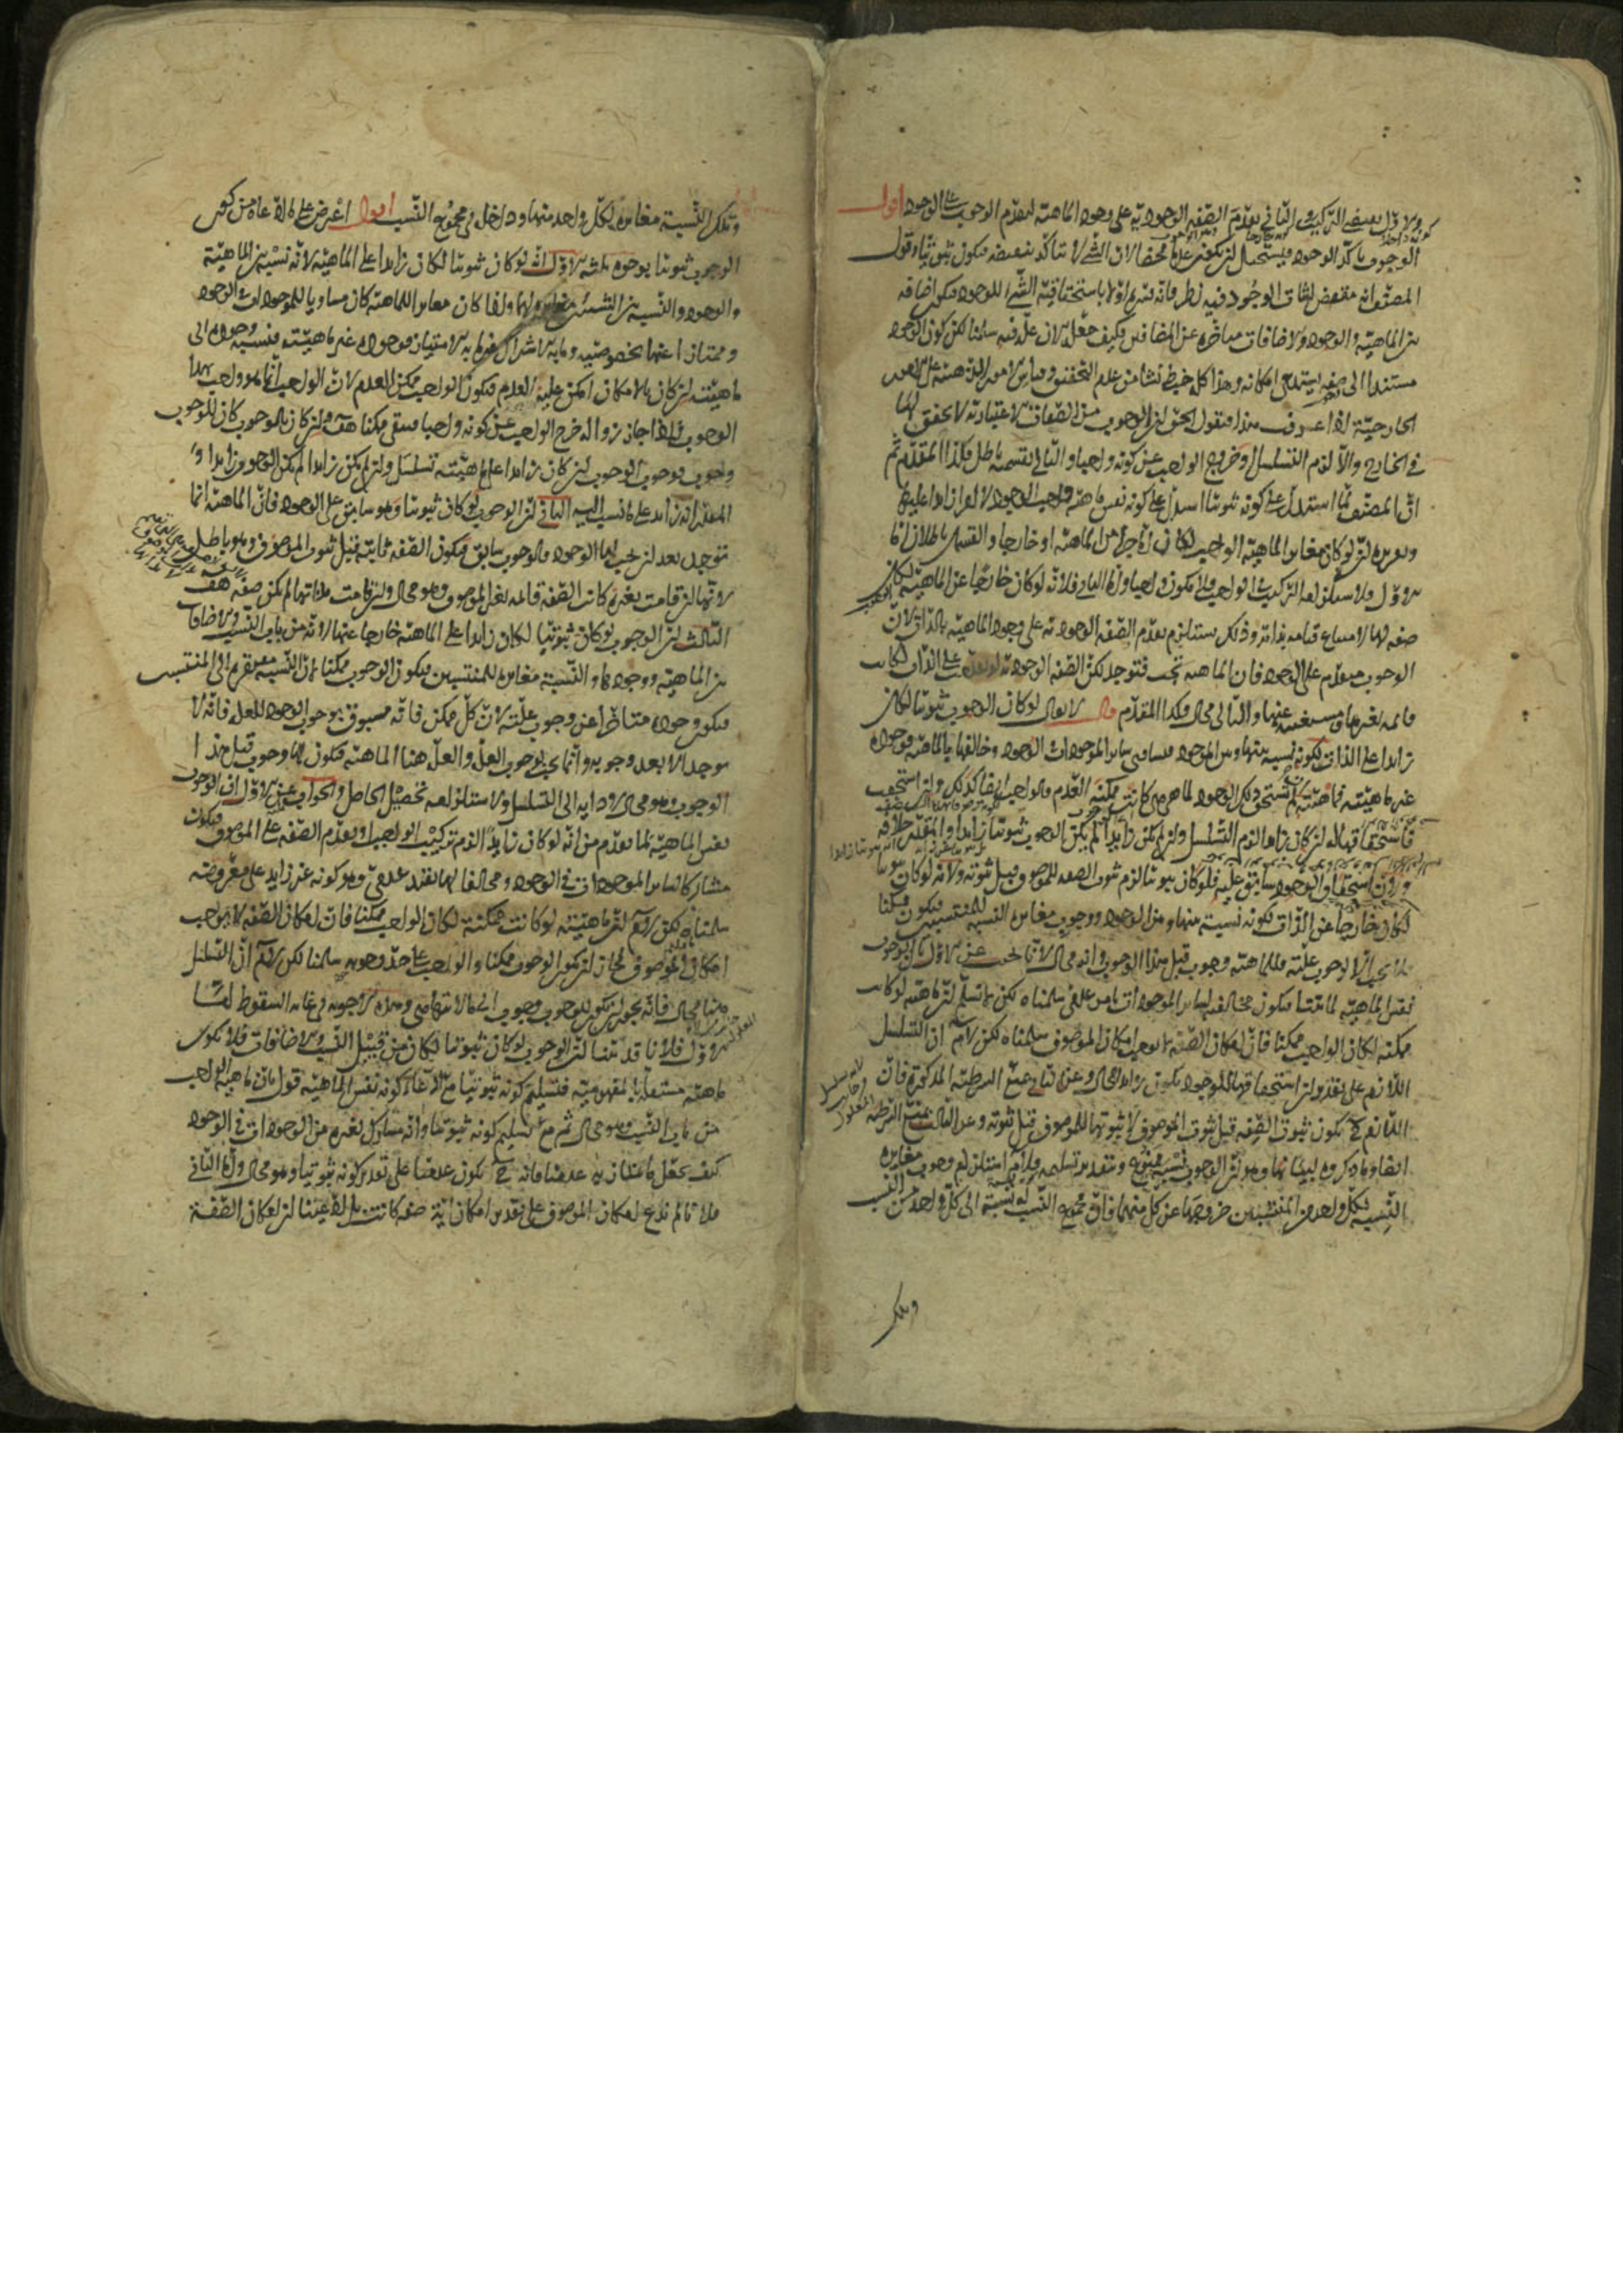 الاول بعينه التركيب والثانى تقدم الصفة الوجودية على وجود الماهية لتقدم الوجوب على الوجود اقول
الوجوب تأكد الوجود فيستحيل ان يكون عدما محضا لان الشىء لا يتأكد بنقيضه فيكون ثبوتيا وقول
المصنف انه مقتض لثبات الوجود فيه نظر فانه فسره اولا باستحقاقية الشىء للوجود فيكون اضافة
بين الماهية والوجود والاضافات متأخرة عن المضافين فكيف جعل الآن علة فيه سلمنا لكن كون الوجود
مستندا الى صفة يستدعى امكانه وهذا كله خبط نشأ من عدم التحقيق وقياس الامور الذهنية على الامور
الخارجية اذا عرف هذا فنقول الحق ان الوجوب من الصفات الاعتبارية لا تحقق لها
فى الخارج والا لزم التسلسل وخروج الواجب عن كونه واجبا والتالى بقسميه باطل فكذا المقدم ثم
ان المصنف لما استدل على كونه ثبوتيا استدل على كونه نفس ماهية واجب الوجود لا امرا زائدا عليها
وتقريره ان لو كان مغايرا لماهية الواجب لكان اما جزءا من الماهية او خارجا والقسمان باطلان اما
الاول فلاستلزامه التركيب فى الواجب فلا يكون واجبا واما الثانى فلانه لو كان خارجا عن الماهية لكان
صفة لها لامتناع قيامه بذاته وذلك يستلزم تقدم الصفة الوجودية على وجود الماهية بالذات لان
الوجوب متقدم على الوجود فان الماهية تجب فتوجد لكن الصفة الوجودية لو تقدمت على الذات لكانت
قائمة بغيرها مستغنية عنها والتالى محال فكذا المقدم قال لا يقال لو كان الوجوب ثبوتيا لكان
زائدا على الذات لكونه نسبة بينها وبين الوجود فساوى سائر الموجودات فى الوجود وخالفها بالماهية فوجوده
غير ماهيته فماهيته ان لم تستحق ذلك الوجود لما هى هى كانت ممكنة العدم فالواجب ايضا كذلك وان استحقت
فاستحقاقها له ان كان زائدا لزم التسلسل وان لم يكن زائدا لم يكن الوجوب ثبوتيا زائدا والمقدر خلافه
ولان استحقاق الوجود سابق عليه فلو كان ثبوتيا لزم ثبوت الصفة للموصوف قبل ثبوته ولانه لو كان ثبوتيا
لكان خارجا عن الذات لكونه نسبة بينها وبين الوجود ووجوب مغايرة النسبة للمنتسبين فيكون ممكنا
فلا يجب الا لوجوب علته فللماهية وجوب قبل هذا الوجوب وانه محال لانا نجيب عن الاول بان الوجوب
نفس الماهية لما بينا فيكون مخالفته لسائر الموجودات بامر عدمى سلمناه لكن لا نسلم ان ماهيته لو كانت
ممكنة لكان الواجب ممكنا فان امكان الصفة لا يوجب امكان الموصوف سلمناه لكن لا نم ان التسلسل
اللازم على تقدير ان استحقاقها للوجود يكون زائدا محال وعن الثانى بمنع الشرطية المذكورة فان
اللازم ح يكون ثبوت الصفة قبل ثبوت الموصوف لا ثبوتها للموصوف قبل ثبوته وعن الثالث بمنع الشرطية
ايضا وما ذكروه لبيانها وهو ان الوجوب نسبة ممنوع وبتقدير تسليمه فلا نم استلزام وجوب مغايرة
النسبة لكل واحد من المنتسبين خروجها عن كل منهما فان مجموع النسب له نسبة الى كل واحد من النسب
وتلك
وتلك النسبة مغايرة لكل واحد منهما وداخل فى مجموع النسب اقول اعترض على ما ادعاه من كون
الوجوب ثبوتيا بوجوه ثلثة الاول انه لو كان ثبوتيا لكان زائدا على الماهية لانه نسبة بين الماهية
والوجود والنسبة بين الشيئين مغايرة لهما واذا كان مغايرا للماهية كان مساويا للموجودات فى الوجود
وممتازا عنها بخصوصيته وما به الاشتراك غير ما به الامتياز فوجوده غير ماهيته فنسبة وجوده الى
ماهيته ان كان بالامكان امكن عليه العدم فيكون الواجب ممكن العدم لان الواجب انما هو واجب بهذا
الوجوب فاذا جاز زواله خرج الواجب عن كونه واجبا فبقى ممكنا هف وان كان بالوجوب كان للوجوب
وجوب فوجوب الوجوب ان كان زائدا على ماهيته تسلسل وان لم يكن زائدا لم يكن الوجوب زائدا و
المقدر انه زائد على ما نسب اليه الثانى ان الوجوب لو كان ثبوتيا وهو سابق على الوجود فان الماهية انما
توجد بعد ان يجب لها الوجود فالوجوب سابق فيكون الصفة ثابتة قبل ثبوت الموصوف وهو باطل
لانها ان قامت بغيره كانت الصفة قائمة بغير الموصوف وهو محال وان قامت بذاتها لم تكن صفة هف
الثالث ان الوجوب لو كان ثبوتيا لكان زائدا على الماهية خارجا عنها لانه من باب النسب والاضافات
بين الماهية ووجودها والنسبة مغايرة للمنتسبين فيكون الوجوب ممكنا لان النسبة مفتقرة الى المنتسب
فيكون وجوده متأخرا عن وجوب علته لان كل ممكن فانه مسبوق بوجوب الوجود للعلة فانه لا
يوجد الا بعد وجوبه وانما يجب لوجوب العلة والعلة هنا الماهية فيكون لها وجوب قبل هذا
الوجوب وهو محال لادائه الى التسلسل ولاستلزامه تحصيل الحاصل والجواب عن الاول ان الوجوب
نفس الماهية لما تقدم من انه لو كان زائدا لزم تركيب الواجب او تقدم الصفة على الموصوف فيكون
مشاركا لسائر الموجودات فى الوجود ومخالفا لها بقيد عدمى وهو كونه غير زايد على معروضه
سلمناه لكن لا نم ان ماهيته لو كانت ممكنة لكان الواجب ممكنا فان امكان الصفة لا يوجب
امكان الموصوف فجاز ان يكون الوجوب ممكنا والواجب على حد وجوبه سلمنا لكن لا نم ان التسلسل
هنا محال فانه يجوز ان يكون للوجوب وجوب الى ما لا يتناهى وهذه الاجوبة فى غاية السقوط اما
الاول فلانا قد بينا ان الوجوب لو كان ثبوتيا لكان من قبيل النسب والاضافات فلا يكون
ماهية مستقلة بالمفهومية فتسليم كونه ثبوتيا مع ادعاء كونه نفس الماهية قول بان ماهية الواجب
من باب النسب وهو محال ثم مع تسليم كونه ثبوتيا وانه مشارك لغيره من الموجودات فى الوجود
كيف يجعل ما يمتاز به عدميا فانه ح يكون عدميا على تقدير كونه ثبوتيا وهو محال واما الثانى
فلانا لم ندع امكان الموصوف على تقدير امكان اية صفة كانت بل ادعينا ان امكان الصفة